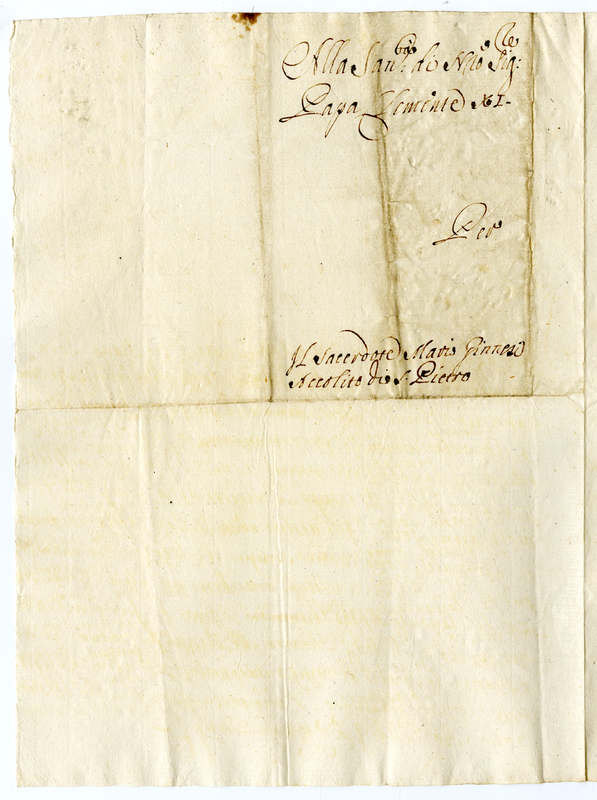 Alla San.tà di N̄ro Sig.re
Papa Clemente XI.
Per
Il Sacerdote Mario
Accolito di S. Pietro